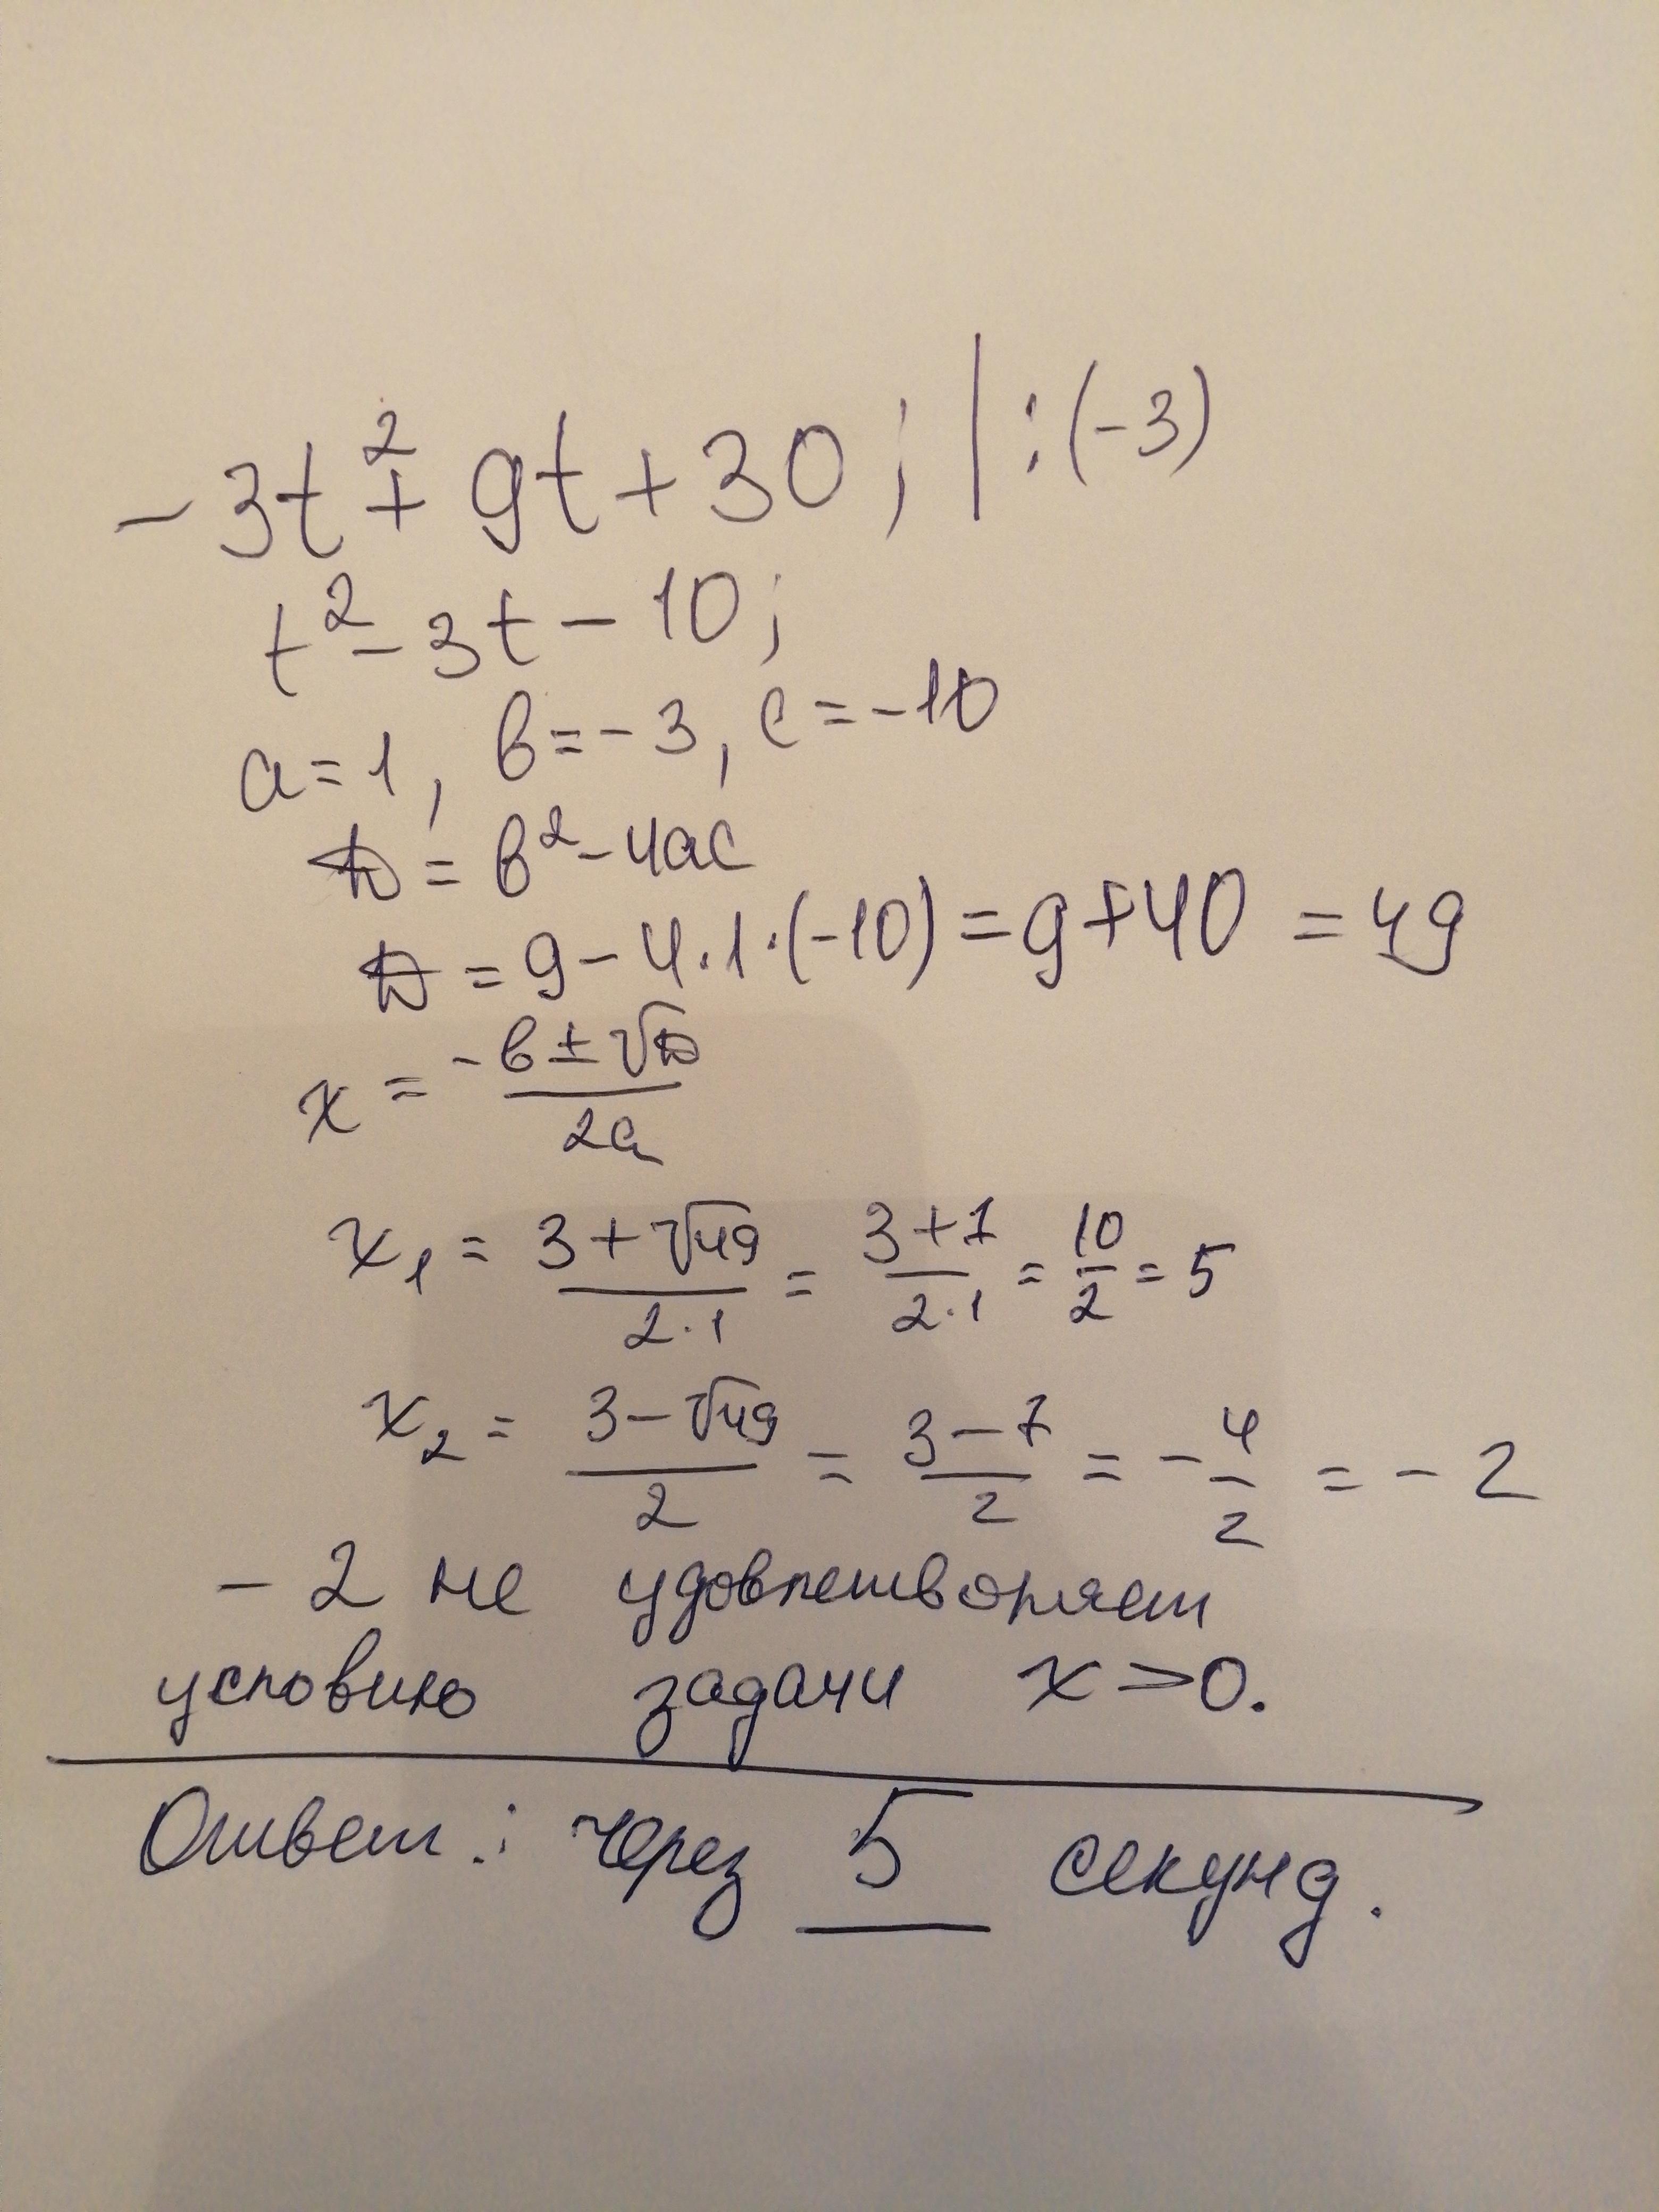 -3t²+9t+30; | :(-3)
t²-3t-10;
a=1, в=-3, c=-10
D=в²-4ac
D=9-4·1·(-10)=9+40=49
x=\frac{-в±√D}{2a}
x₁=\frac{3+√49}{2·1}=\frac{3+7}{2·1}=\frac{10}{2}=5
x₂=\frac{3-√49}{2}=\frac{3-7}{2}=-\frac{4}{2}=-2
-2 не удовлетворяет
условию задачи x>0.
Ответ: через 5 секунд.